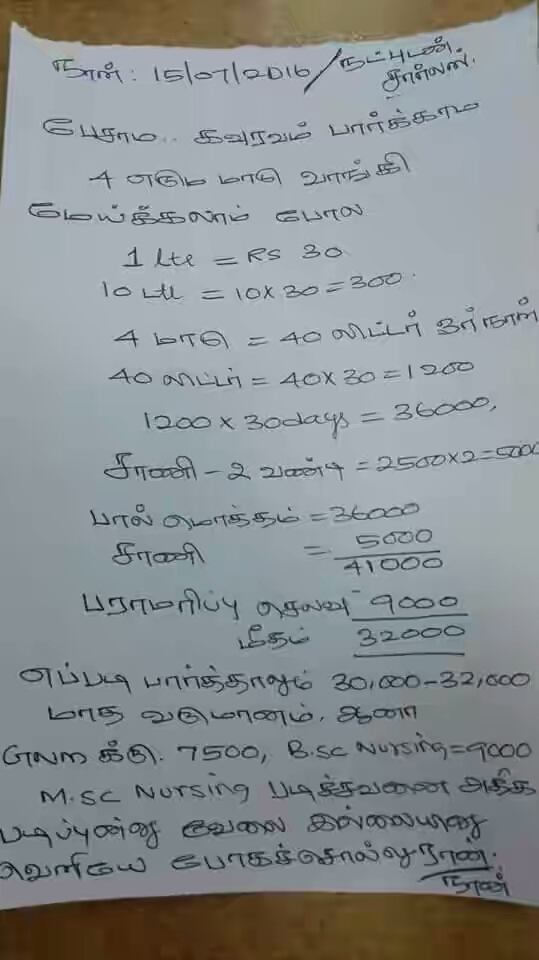 நாள் : 15/07/2016 / நட்புடன்
பேசாம.. கவுரவம் பார்க்காம
4 எரும மாடு வாங்கி
மேய்க்கலாம் போல
1 lte = RS 30
10 Ltl = 10 x 30 = 300.
4 மாடு = 40 லிட்டர் ஒர் நாள்
40 லிட்டர் = 40 x 30 = 1200
1200 x 30days = 36000,
சாணி - 2 வண்டி = 2500 x 2 = 5000
பால் மொத்தம் = 36000
சாணி = 5000
41000
பராமரிப்பு செலவு 9000
மீதம் 32000
எப்படி பார்த்தாலும் 30,000 - 32,000
மாத வருமானம், ஆனா
7500, B.sc Nursing = 9000
M.sc Nursing படிச்சவனை அதிக
படிப்புன்னு வேலை இல்லையுனு
வெளியே போகச்சொல்லுறான்.